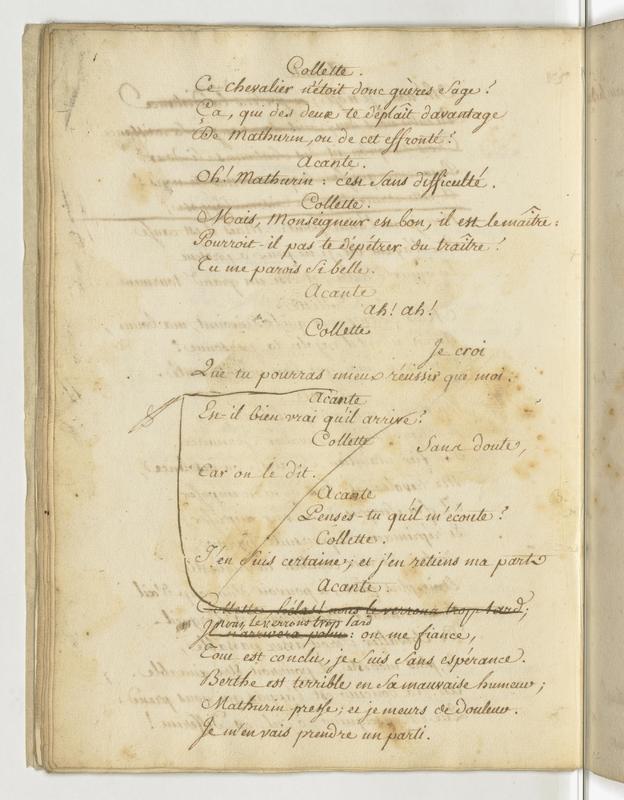 Collette.
Ce chevalier n'étoit donc guères sage?
Ça, qui des deux te déplaît davantage
De Mathurin, ou de cet effronté?
Acante.
Oh! Mathurin: c'est sans difficulté.
Collette.
Mais, Monseigneur est bon, il est le maître:
Pourroit-il pas te dépétrer du traître?
Tu me parois si belle.
Acante
ah! ah!
Collette
Je croi
Que tu pourras mieux réussir que moi.
Acante
Est-il bien vrai qu'il arrive?
Collette
Sans doute,
Car on le dit.
Acante
Penses-tu qu'il m'écoute?
Collette.
J'en suis certaine; et j'en retiens ma part
Acante.
Collette hélas! nous le verrons trop tard;
nous le verrons trop tard
Il n'arrivera point: on me fiance,
Tout est conclu, je suis sans espérance.
Berthe est terrible en sa mauvaise humeur;
Mathurin presse; et je meurs de douleur.
Je m'en vais prendre un parti.